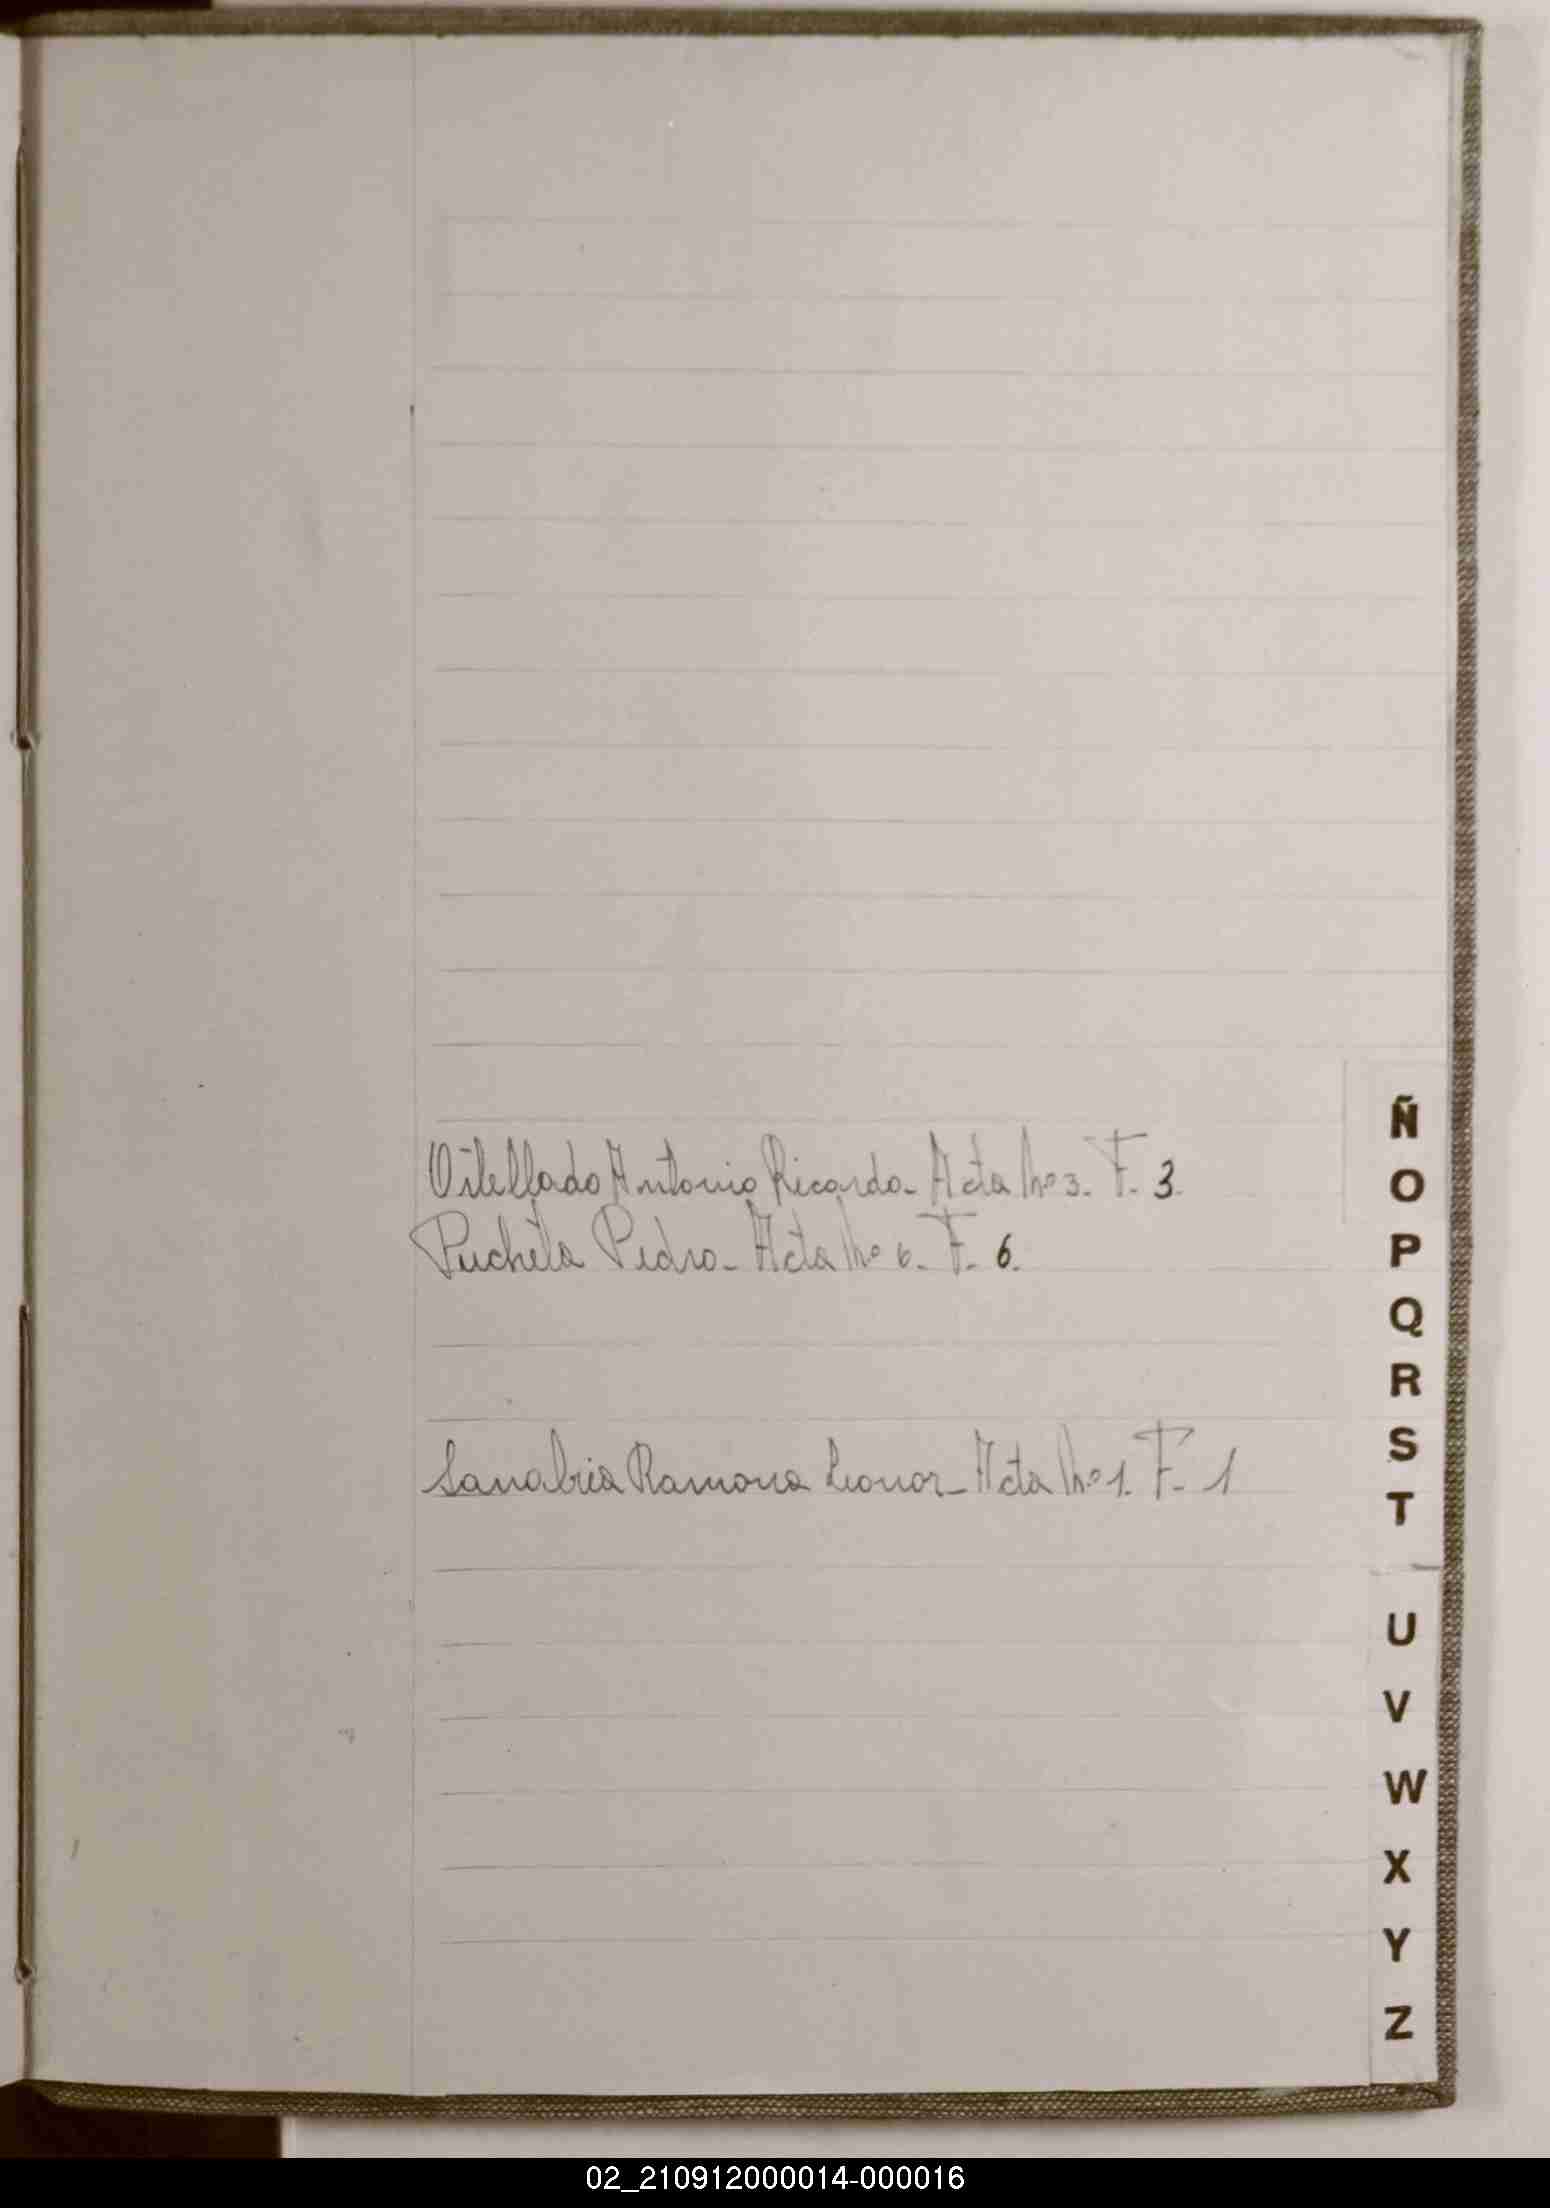 Oilellado Antonio Ricardo - Acta No 3. F. 3.
Pucheta Pedro - Acta No 6. F. 6.
Sanabria Ramona Leonor - Acta No 1. F. 1
Ñ
O
P
Q
R
S
T
U
V
W
X
Y
Z
02_210912000014-000016